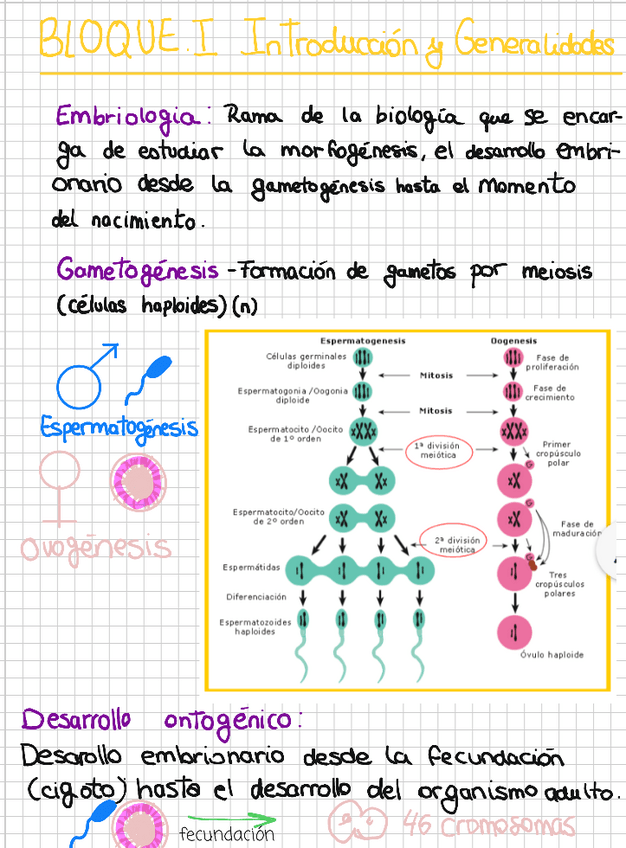 BLOQUE.I Introducción y Generalidades
Embriologia: Rama de la biología que se encar-
ga de estudiar la morfogénesis, el desarrollo embri-
onario desde la gametogénesis hasta el momento
del nacimiento.
Gametogénesis - Formación de gametos por meiosis
(células haploides) (n)
Espermatogénesis
Ovogénesis
Espermatogenesis
Oogenesis
Células germinales
diploides
Fase de
proliferación
Mitosis
Espermatogonia /Oogonia
diploide
Fase de
crecimiento
Mitosis
Espermatocito /Oocito
de 1º orden
1ª división
meiótica
Primer
cropúsculo
polar
Espermatocito/Oocito
de 2º orden
2ª división
meiótica
Fase de
maduración
Espermátidas
Tres
cropúsculos
polares
Diferenciación
Espermatozoides
haploides
Óvulo haploide
Desarrollo ontogénico:
Desarollo embrionario desde la fecundación
(cigoto) hasta el desarrollo del organismo adulto.
fecundación
46 cromosomas